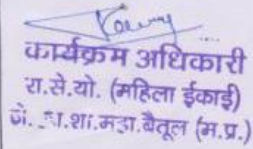 कार्यक्रम अधिकारी
रा.से.यो. (महिला ईकाई)
शा.महा.बैतूल (म.प्र.)